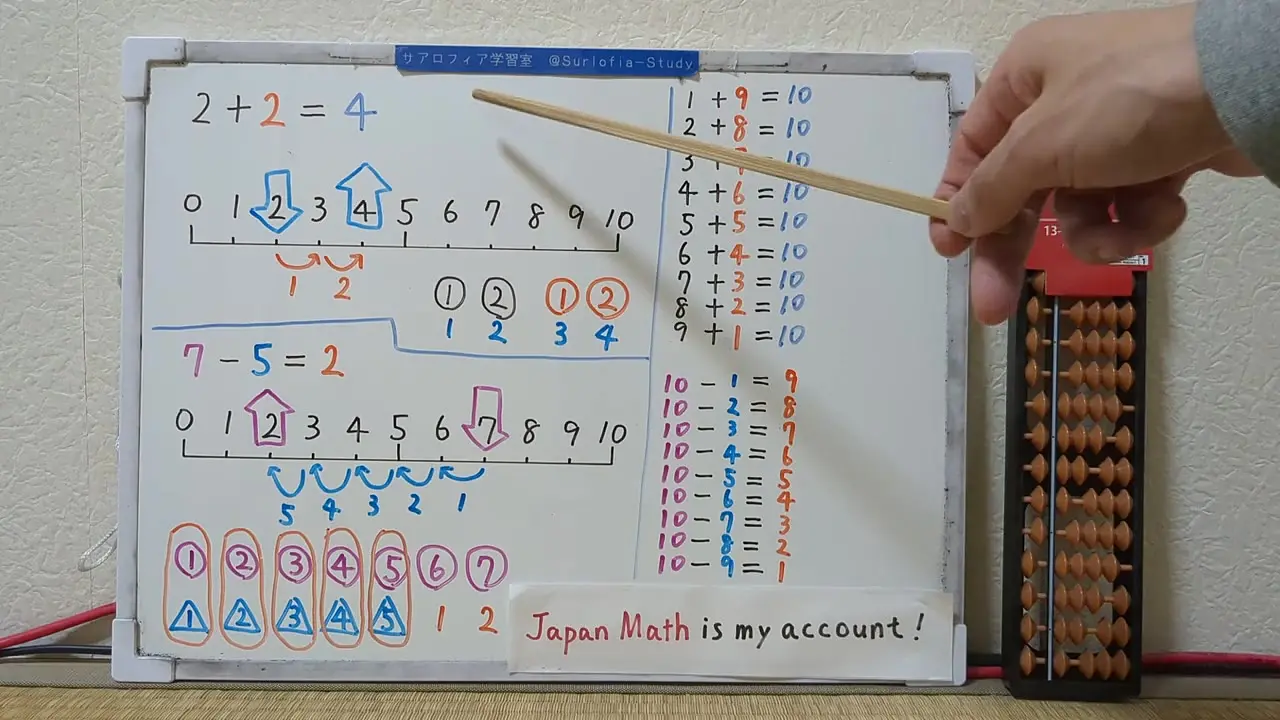 サアロフィア学習室 @Surlofia-Study
2 + 2 = 4
0 1 2 3 4 5 6 7 8 9 10
1 2
① ② ① ②
1 2 3 4
7 - 5 = 2
0 1 2 3 4 5 6 7 8 9 10
5 4 3 2 1
① ② ③ ④ ⑤ ⑥ ⑦
1 2 3 4 5 1 2
1 + 9 = 10
2 + 8 = 10
3 + 7 = 10
4 + 6 = 10
5 + 5 = 10
6 + 4 = 10
7 + 3 = 10
8 + 2 = 10
9 + 1 = 10
10 - 1 = 9
10 - 2 = 8
10 - 3 = 7
10 - 4 = 6
10 - 5 = 5
10 - 6 = 4
10 - 7 = 3
10 - 8 = 2
10 - 9 = 1
Japan Math is my account!
13-